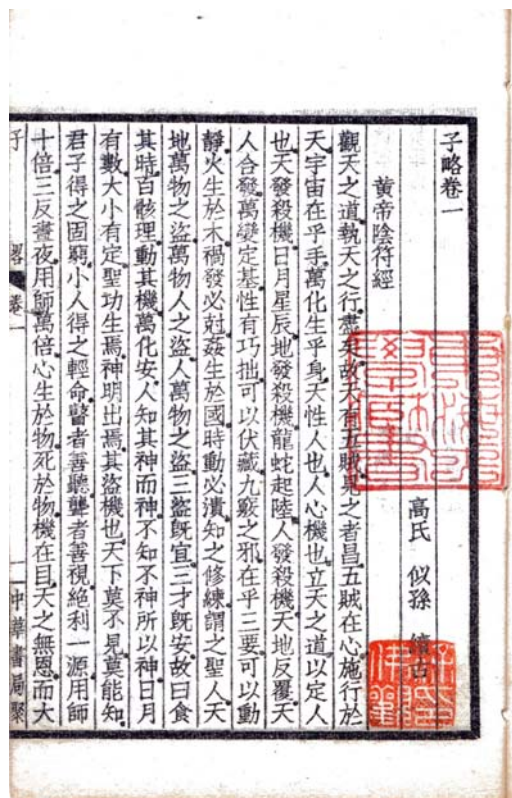 子略卷一
高氏 似孫 續古
黃帝陰符經
觀天之道執天之行盡矣故天有五賊見之者昌五賊在心施行於
天宇宙在乎手萬化生乎身天性人也人心機也立天之道以定人
也天發殺機日月星辰地發殺機龍蛇起陸人發殺機天地反覆天
人合發萬變定基性有巧拙可以伏藏九竅之邪在乎三要可以動
靜火生於木禍發必尅姦生於國時動必潰知之修練謂之聖人天
地萬物之盜萬物人之盜人萬物之盜三盜既宜三才既安故曰食
其時百骸理動其機萬化安人知其神而神不知不神所以神日月
有數大小有定聖功生焉神明出焉其盜機也天下莫不見莫能知
君子得之固窮小人得之輕命瞽者善聽聾者善視絕利一源用師
十倍三反晝夜用師萬倍心生於物死於物機在目天之無恩而大
子 略 卷一 一 中華書局聚